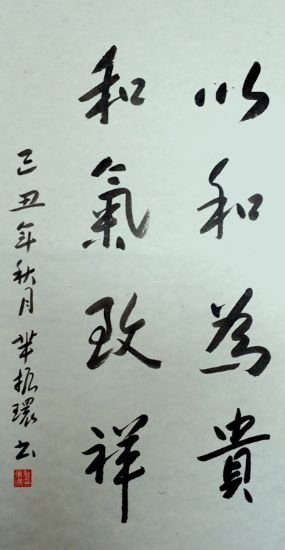 以和為貴
和氣致祥
己丑年秋月畢振環书